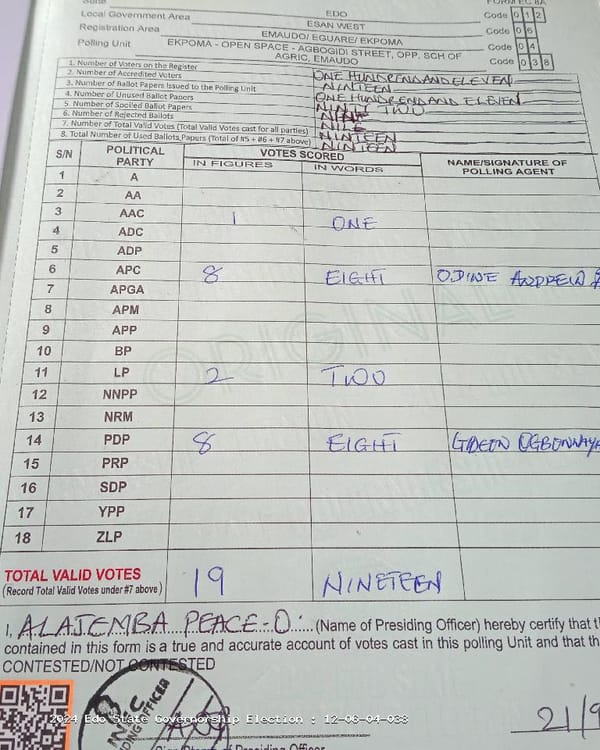 State
FORM EC 8A
EDO
Local Government Area
ESAN WEST
Code 0 1 2
Registration Area
EMAUDO/ EGUARE/ EKPOMA
Code 0 6
Polling Unit
EKPOMA - OPEN SPACE - AGBOGIDI STREET, OPP. SCH OF AGRIC, EMAUDO
Code 0 4
Code 0 3 8
1. Number of Voters on the Register ONE HUNDREND AND ELEVEN
2. Number of Accredited Voters NINTEEN
3. Number of Ballot Papers Issued to the Polling Unit ONE HUNDREND AND ELEVEN
4. Number of Unused Ballot Papers NINTY TWO
5. Number of Spoiled Ballot Papers
6. Number of Rejected Ballots
7. Number of Total Valid Votes (Total Valid Votes cast for all parties) NINETEEN
8. Total Number of Used Ballots Papers (Total of #5 + #6 + #7 above) NINETEEN
S/N POLITICAL PARTY VOTES SCORED NAME/SIGNATURE OF POLLING AGENT
IN FIGURES IN WORDS
1 A
2 AA
3 AAC 1 ONE
4 ADC
5 ADP
6 APC 8 EIGHT ODINE ANDREW
7 APGA
8 APM
9 APP
10 BP
11 LP 2 TWO
12 NNPP
13 NRM
14 PDP 8 EIGHT GIDEON OGBONNAYA
15 PRP
16 SDP
17 YPP
18 ZLP
ORIGINAL
TOTAL VALID VOTES 19 NINETEEN
(Record Total Valid Votes under #7 above)
I, ALAJEMBA PEACE-O. (Name of Presiding Officer) hereby certify that t
contained in this form is a true and accurate account of votes cast in this polling Unit and that th
CONTESTED/NOT CONTESTED
2024 Edo State Governorship Election : 12-06-04-038
21/9